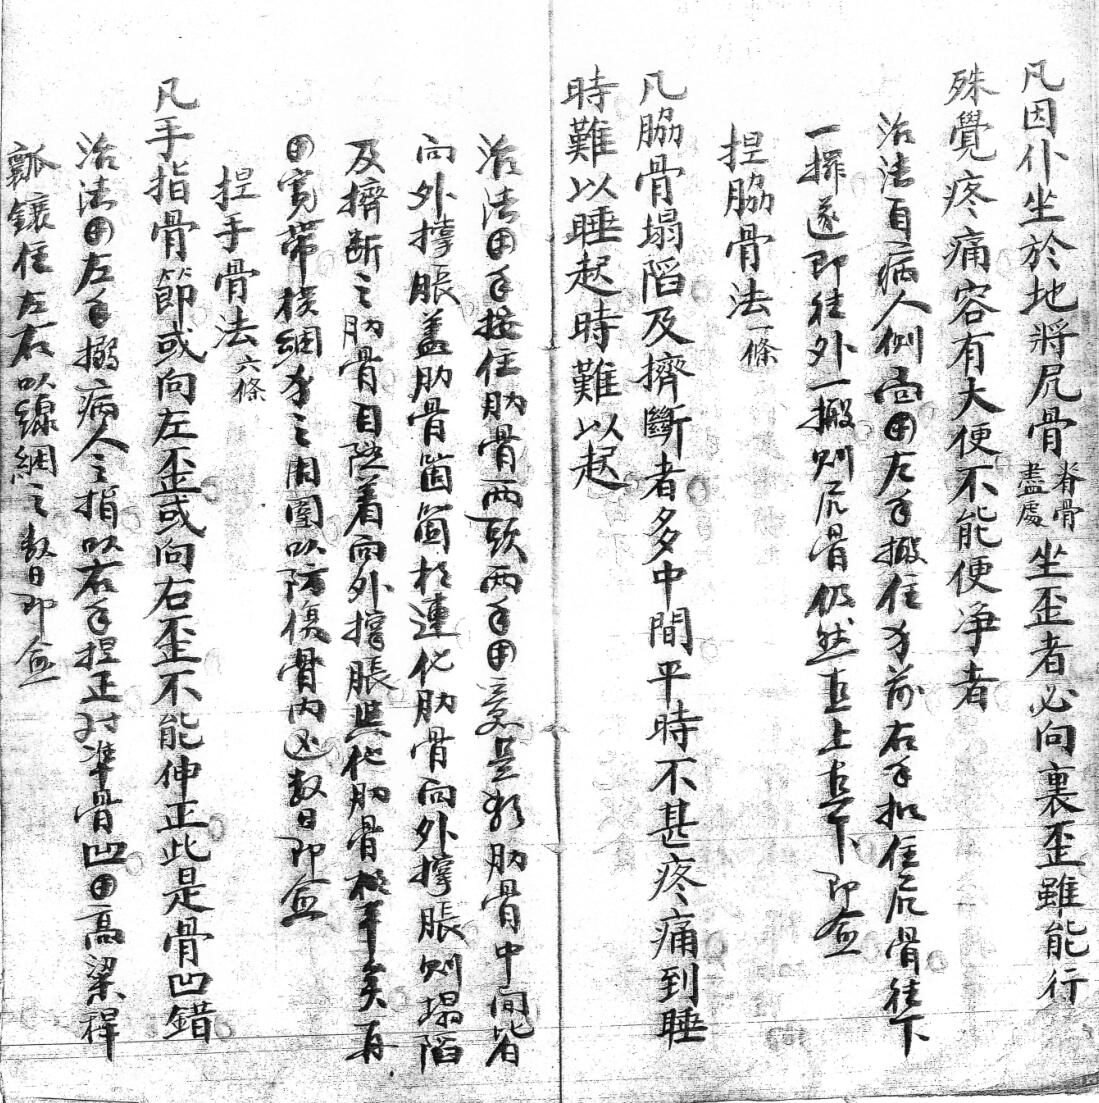 凡因仆坐於地將尻骨脊骨盡處坐歪者必向裏歪雖能行
殊覺疼痛容有大便不能便净者
治法自病人側面用左手搬住身前右手扣住尻骨往下
一擢遂即往外一搬则尻骨仍然直上直下即愈
捏脇骨法一條
凡脇骨塌陷及擠斷者多中間平時不甚疼痛到睡
時難以睡起時難以起
治法用手按住肋骨两頭两手用意是教肋骨中间皆
向外撑賬盖肋骨箇箇相連他肋骨向外撑賬则塌陷
及擠断之肋骨自随着向外撑賬與他肋骨相平矣再
用寬帶横綑身之周圍以防復骨内凹数日即愈
捏手骨法六條
凡手指骨節或向左歪或向右歪不能伸正此是骨凹錯
治法用左手搦病人之指以右手捏正对準骨凹用高粱桿
瓤鑲住左右以線綑之数日即愈